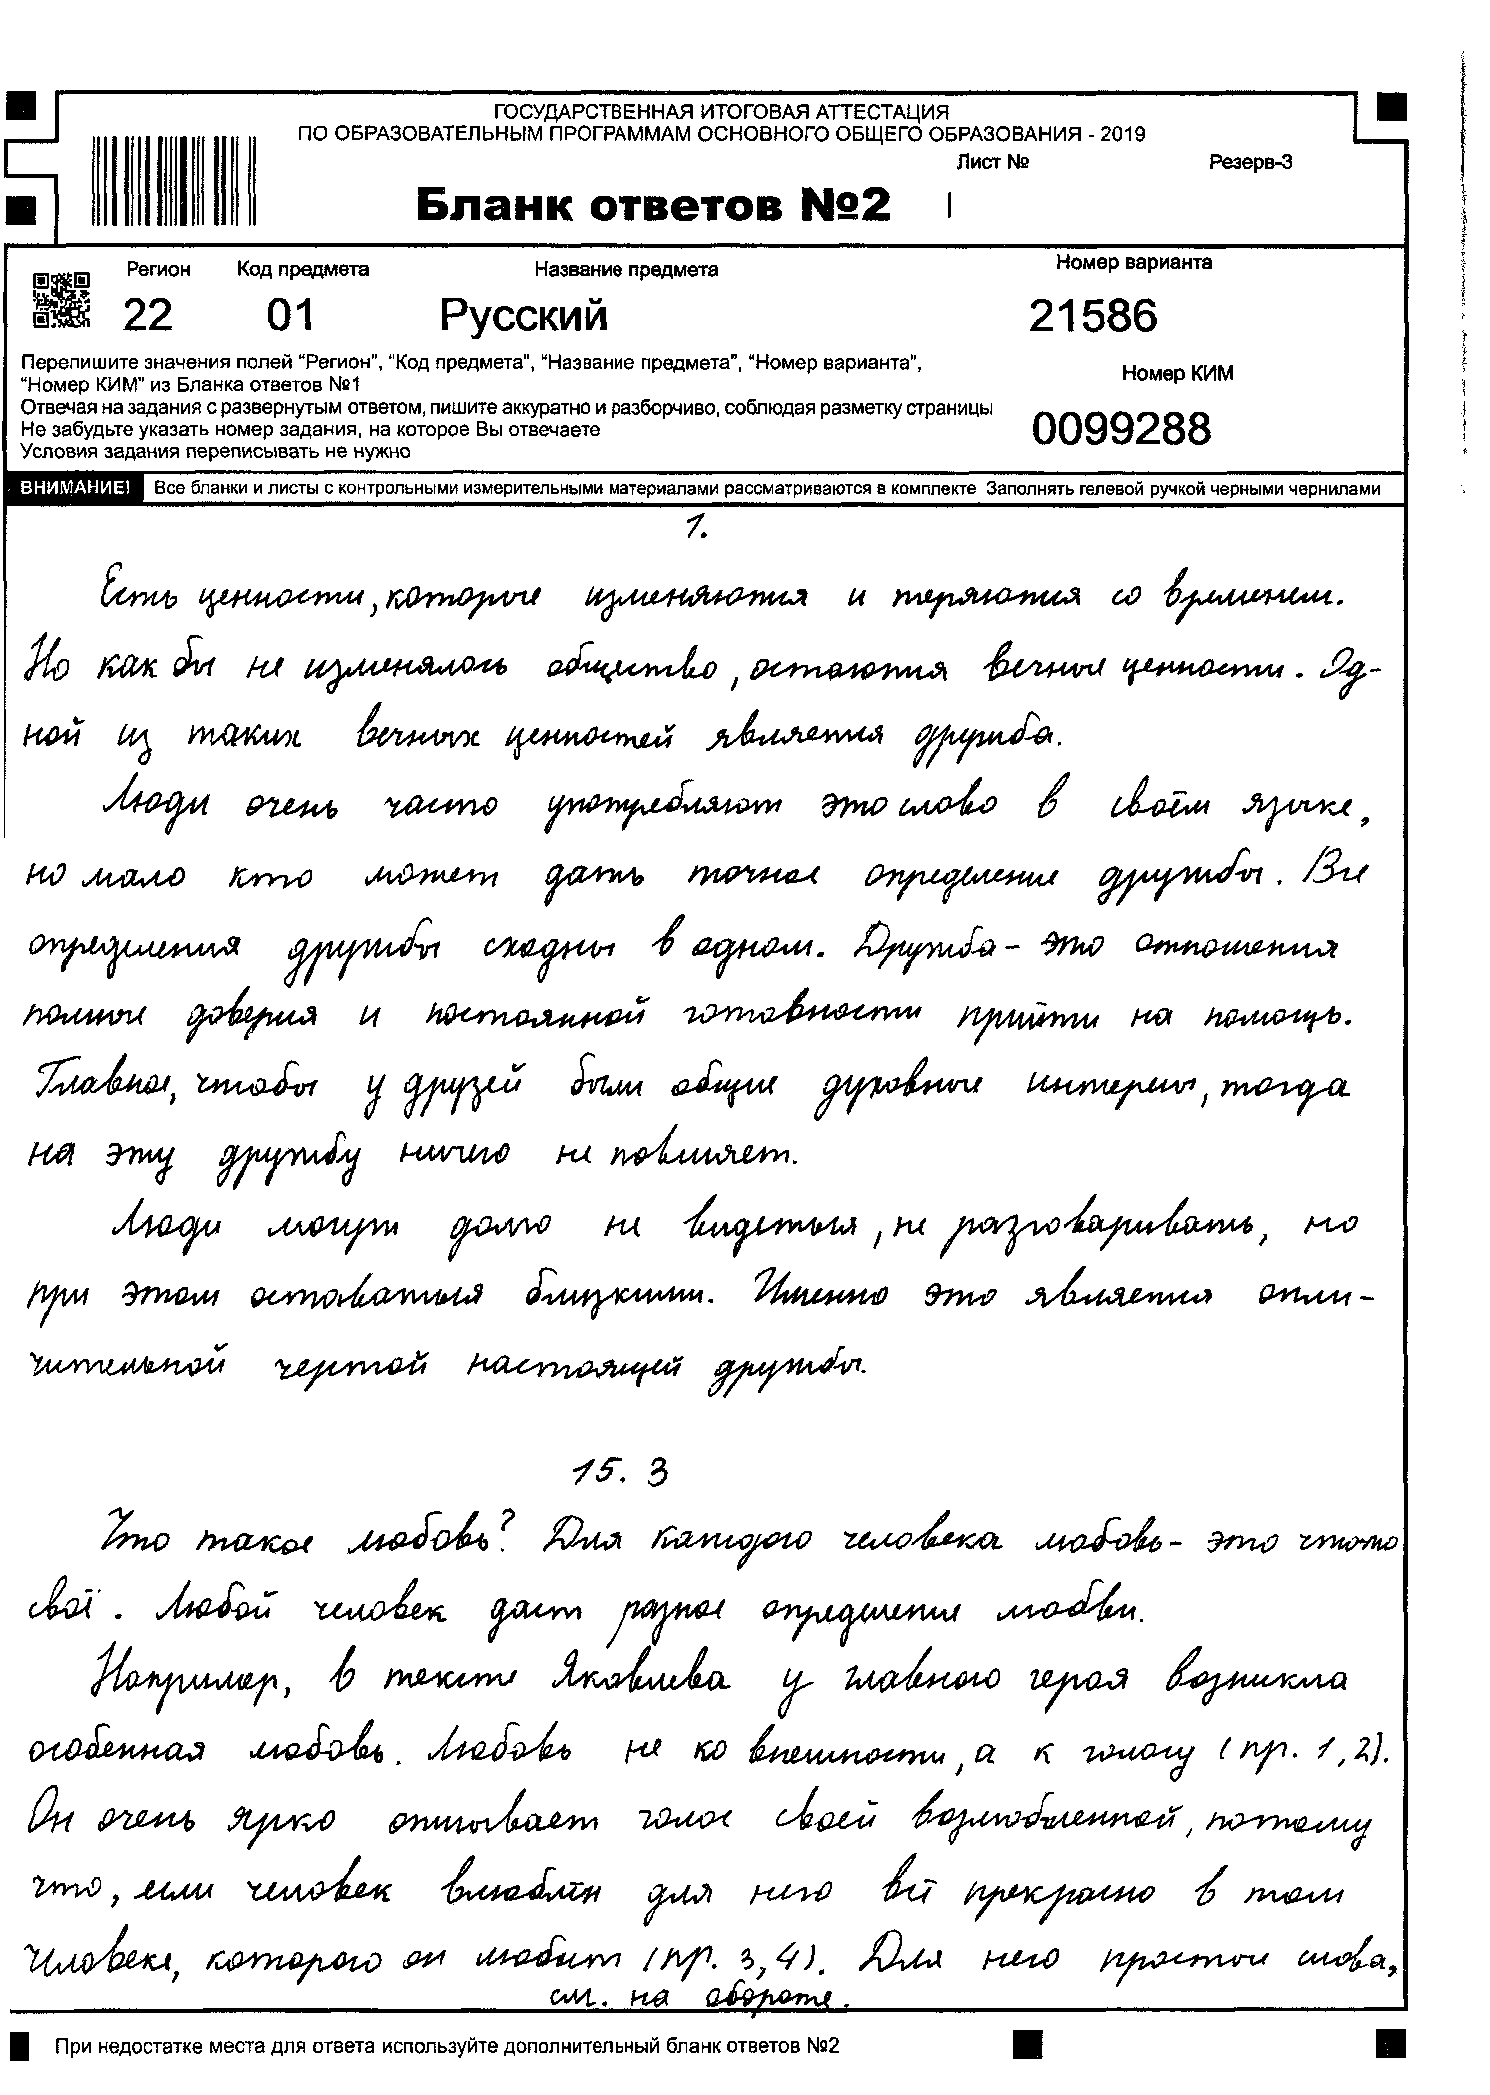 ГОСУДАРСТВЕННАЯ ИТОГОВАЯ АТТЕСТАЦИЯ
ПО ОБРАЗОВАТЕЛЬНЫМ ПРОГРАММАМ ОСНОВНОГО ОБЩЕГО ОБРАЗОВАНИЯ - 2019
Лист № Резерв-3
Бланк ответов №2 1
Регион Код предмета Название предмета Номер варианта
22 01 Русский 21586
Перепишите значения полей "Регион", "Код предмета", "Название предмета", "Номер варианта",
"Номер КИМ" из Бланка ответов №1
Номер КИМ
Отвечая на задания с развернутым ответом, пишите аккуратно и разборчиво, соблюдая разметку страницы
Не забудьте указать номер задания, на которое Вы отвечаете
0099288
Условия задания переписывать не нужно
ВНИМАНИЕ! Все бланки и листы с контрольными измерительными материалами рассматриваются в комплекте Заполнять гелевой ручкой черными чернилами
1.
Есть ценности, которые изменяются и теряются со временем.
Но как бы не изменялось общество, остаются вечные ценности. Од-
ной из таких вечных ценностей является дружба.
Люди очень часто употребляют это слово в своём языке,
но мало кто может дать точное определение дружбы. Все
определения дружбы сходны в одном. Дружба - это отношения
полные доверия и постоянной готовности прийти на помощь.
Главное, чтобы у друзей были общие духовные интересы, тогда
на эту дружбу ничего не повлияет.
Люди могут долго не видеться, не разговаривать, но
при этом оставаться близкими. Именно это является отли-
чительной чертой настоящей дружбы.
15. 3
Что такое любовь? Для каждого человека любовь - это чтото
своё. Любой человек даст разное определение любви.
Например, в тексте Яковлева у главного героя возникла
особенная любовь. Любовь не ко внешности, а к голосу (пр. 1,2).
Он очень ярко описывает голос своей возлюбленной, потому
что, если человек влюблён для него всё прекрасно в том
человеке, которого он любит (пр. 3,4). Для него простые слова,
см. на обороте.
При недостатке места для ответа используйте дополнительный бланк ответов №2